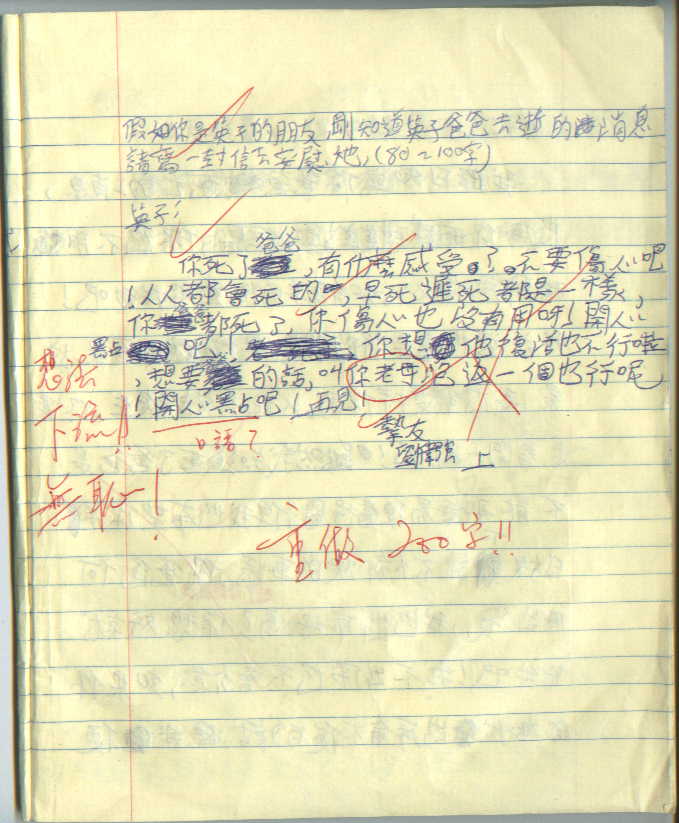 假如你是英子的朋友,剛知道英子爸爸去逝的消息
請寫一對信去安慰她,(80~100字)
英子:
爸爸
你死了,有什麼感受。了。不要傷心吧
!人人都會死的,早死遲死都是一樣,
你都死了,你傷心也沒有用呀!開心
點吧!你想他復活也不行啦
,想要的話,叫你老母泡返一個也行呢
!開心點吧!再見!
摯友
上
想法
下流!!
無恥!
口語?
重做 200字!!